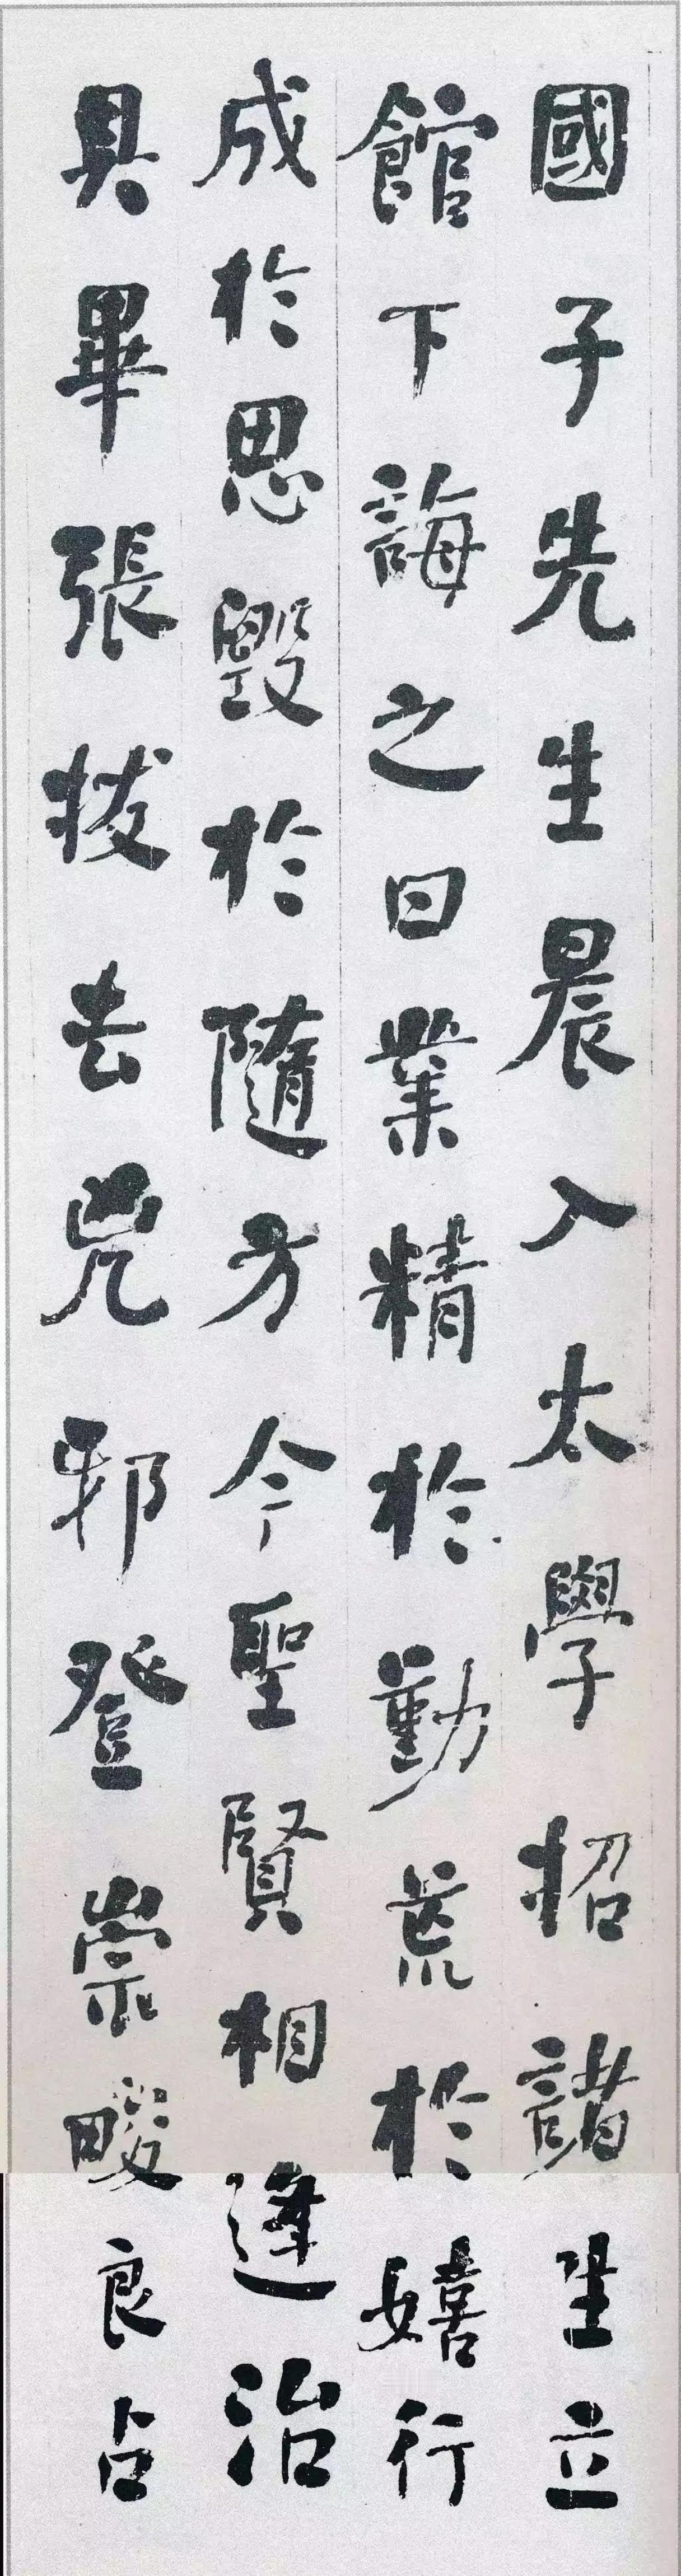 國子先生晨入太學招諸生立
館下誨之曰業精於勤荒於嬉行
成於思毀於隨方今聖賢相逢治
具畢張拔去兇邪登崇畯良占